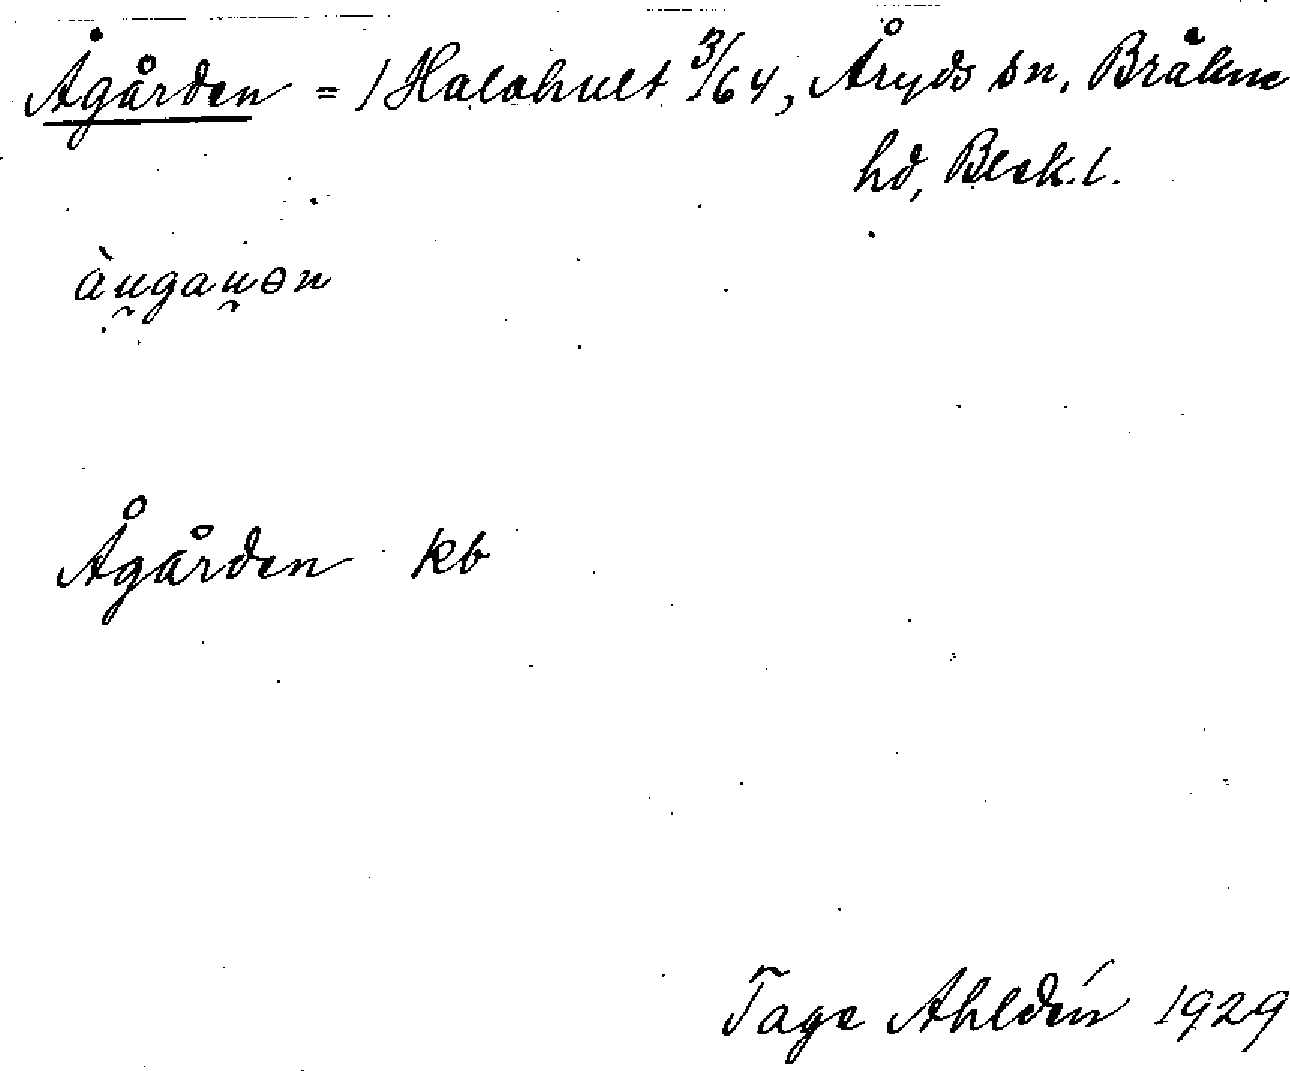 Ågården = 1 Halahult 3/64, Åryds sn, Bräkne
hd, Blek. l.
àu̯gau̯ən
Ågården kb
Tage Ahldén 1929